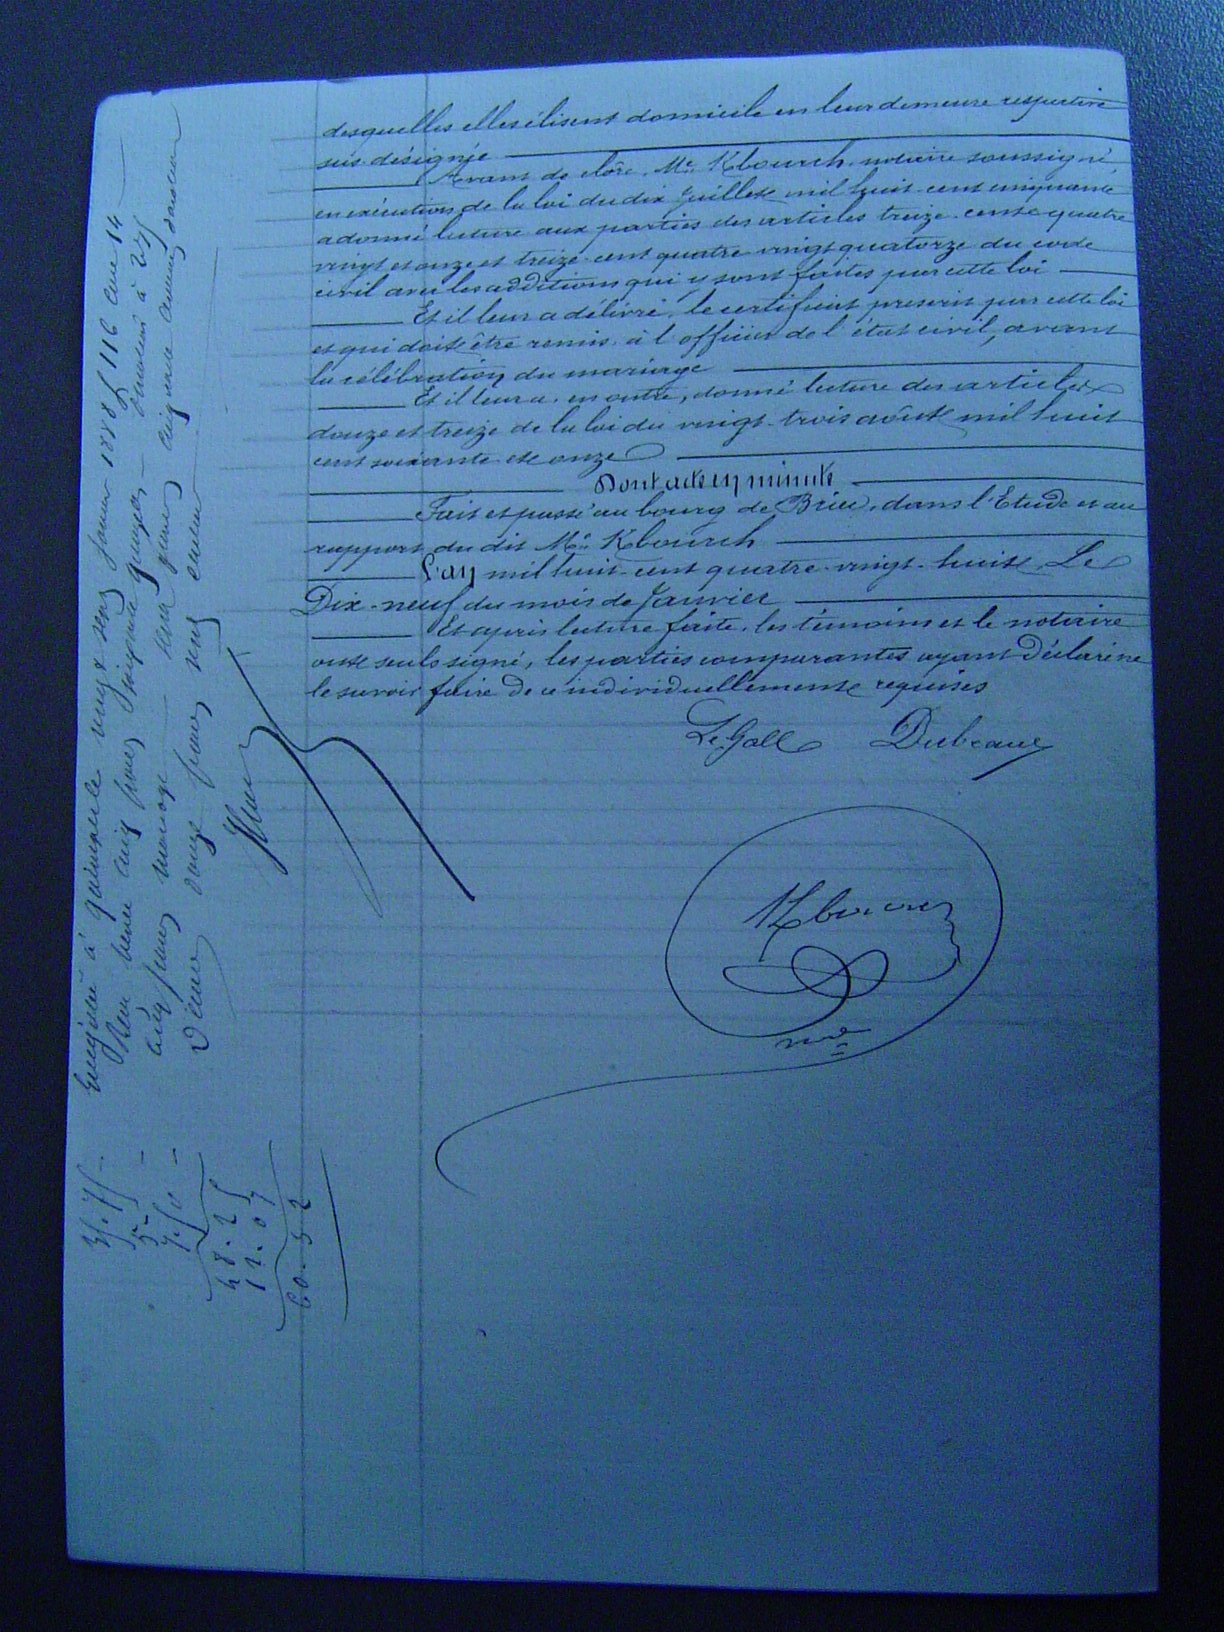 desquelles elles élisent domicile en leur demeure respective
sus désignée
Avant de clôre, Me Kbourch, notaire soussigné,
en exécution de la loi du dix juillet mil huit cent cinquante
a donné lecture aux parties des articles treize cent quatre
vingt et onze et treize cent quatre vingt quatorze du code
civil avec les additions qui y sont faites par cette loi
Et il leur a délivré le certificat prescrit par cette loi
et qui doit être remis à l'officier de l'état civil, avant
la célébration du mariage
Et il leur a, en outre, donné lecture des articles
douze et treize de la loi du vingt-trois août mil huit
cent soixante et onze
Dont acte en minute
Fait et passé au bourg de Briec, dans l'Etude et au
rapport du dit Me Kbourch
L'an mil huit cent quatre-vingt-huit Le
Dix-neuf du mois de Janvier
Et après lecture faite, les témoins et le notaire
ont seuls signé, les parties comparantes ayant déclaré ne
le savoir faire de ce individuellement requises
Le Gall Dubeaux
Kbourch
nre
à quimper le vingt six Janvier 1888 f 116 case 14
cinq francs soixante quinze
cinq francs mariage
douze francs
35.75
5 -
7.50 -
48.25
12.07
60.32